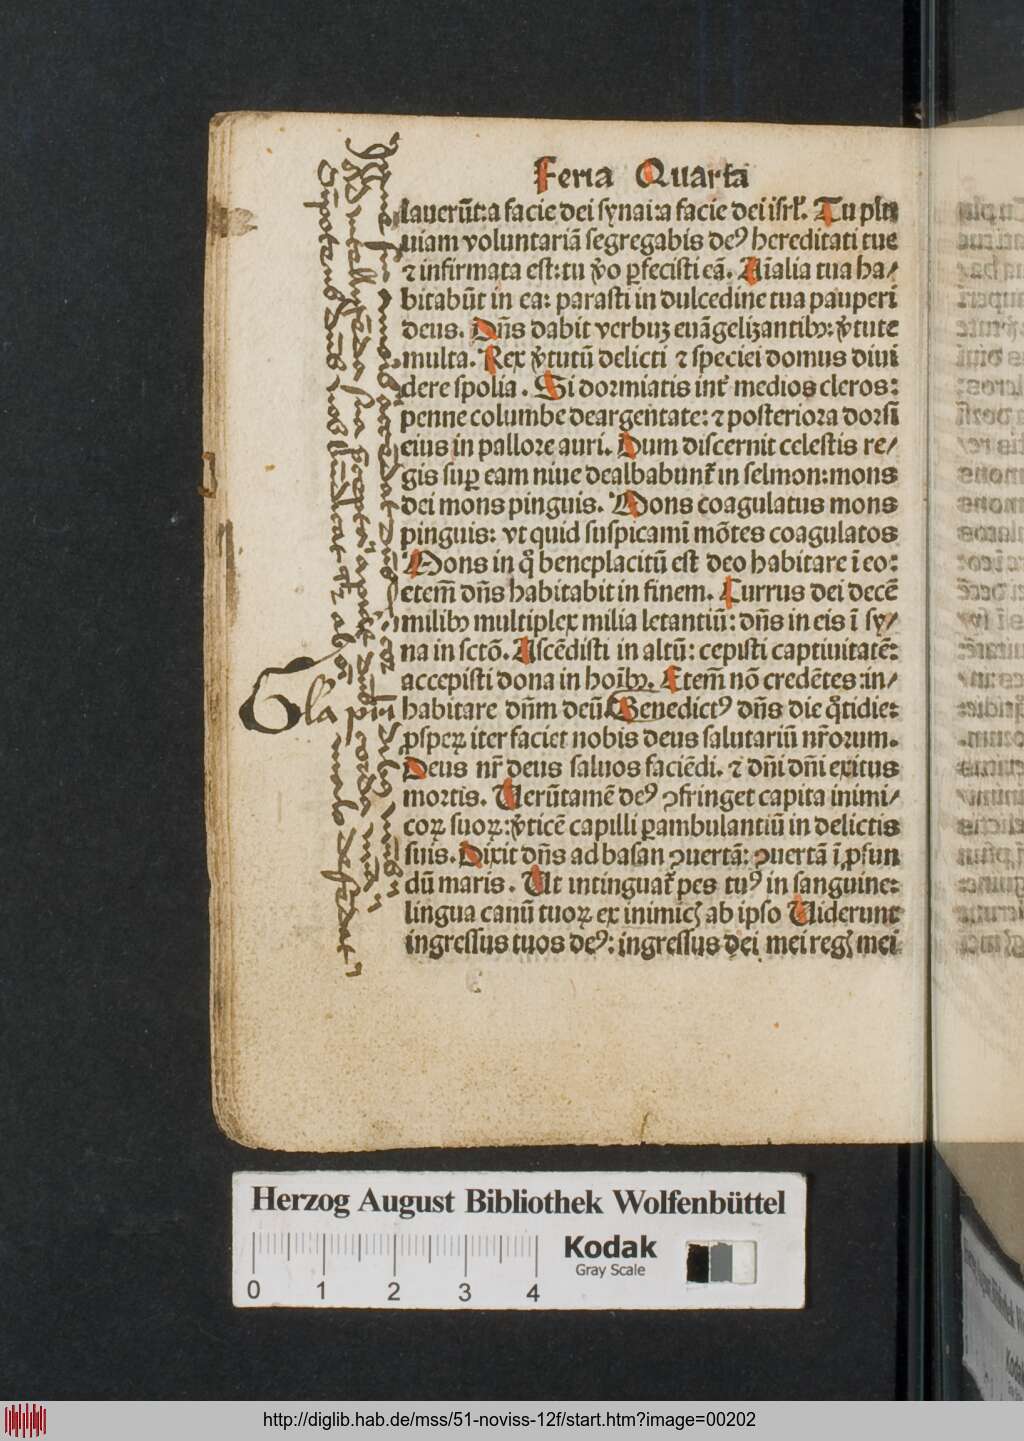 Feria Quarta
lauerūt: a facie dei synai: a facie dei isrł. Tu plu
uiam voluntariā segregabis deꝰ hereditati tue
⁊ infirmata est: tu ꝟo ꝑfecisti eā. Aīalia tua ha/
bitabūt in ea: parasti in dulcedine tua pauperi
deus. Dn̄s dabit verbuꝫ euāgelizantibꝫ: ꝟtute
multa. Rex ꝟtutū delicti ⁊ speciei domus diui
dere spolia. Si dormiatis int̓ medios cleros:
penne columbe deargentate: ⁊ posteriora dorsi
eius in pallore auri. Dum discernit celestis re/
gis suꝑ eam niue dealbabunt̓ in selmon: mons
dei mons pinguis. Mons coagulatus mons
pinguis: vt quid suspicami mōtes coagulatos
Mons in qͦ beneplacitū est deo habitare ī eo:
etem̄ dn̄s habitabit in finem. Currus dei decē
milibꝫ multiplex milia letantiū: dn̄s in eis ī sy/
na in sctō. Ascēdisti in altū: cepisti captiuitatē:
accepisti dona in hoībꝫ. Etem̄ nō credētes: in/
habitare dn̄m deū Benedictꝰ dn̄s die qͦtidie:
ꝓsperꝝ iter faciet nobis deus salutariū nr̄orum.
Deus nr̄ deus saluos faciēdi. ⁊ dn̄i dn̄i exitus
mortis. Uerūtamē deꝰ ꝯfringet capita inimi/
coꝝ suoꝝ: ꝟticē capilli ꝑambulantiū in delictis
suis. Dixit dn̄s ad basan ꝯuertā: ꝯuertā ī ꝓfun
dū maris. Ut intinguat̓ pes tuꝰ in sanguine:
lingua canū tuoꝝ ex inimicꝭ ab ipso Uiderunt
ingressus tuos deꝰ: ingressus dei mei regꝭ mei
Gla
Herzog August Bibliothek Wolfenbüttel
0 1 2 3 4
Kodak
Gray Scale
http://diglib.hab.de/mss/51-noviss-12f/start.htm?image=00202